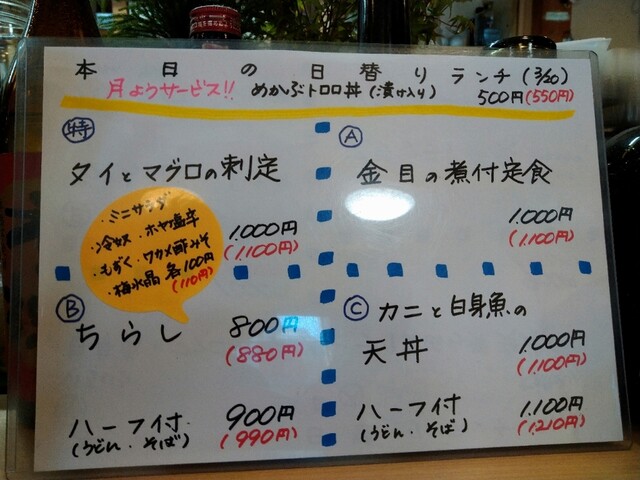 本日の日替りランチ(3/20)
月ようサービス!! めかぶトロロ丼(漬け入り) 500円(550円)
特
タイとマグロの刺定
1.000円
(1.100円)
・ミニサラダ
・冷奴 ・ホヤ塩辛
・もずく・ワカメ酢みそ
・梅水晶 各100円
(110円)
A
金目の煮付定食
1.000円
(1.100円)
B
ちらし 800円
(880円)
ハーフ付 900円
(うどん・そば) (990円)
C カニと白身魚の
天丼 1.000円
(1.100円)
ハーフ付 1.100円
(うどん・そば) (1,210円)